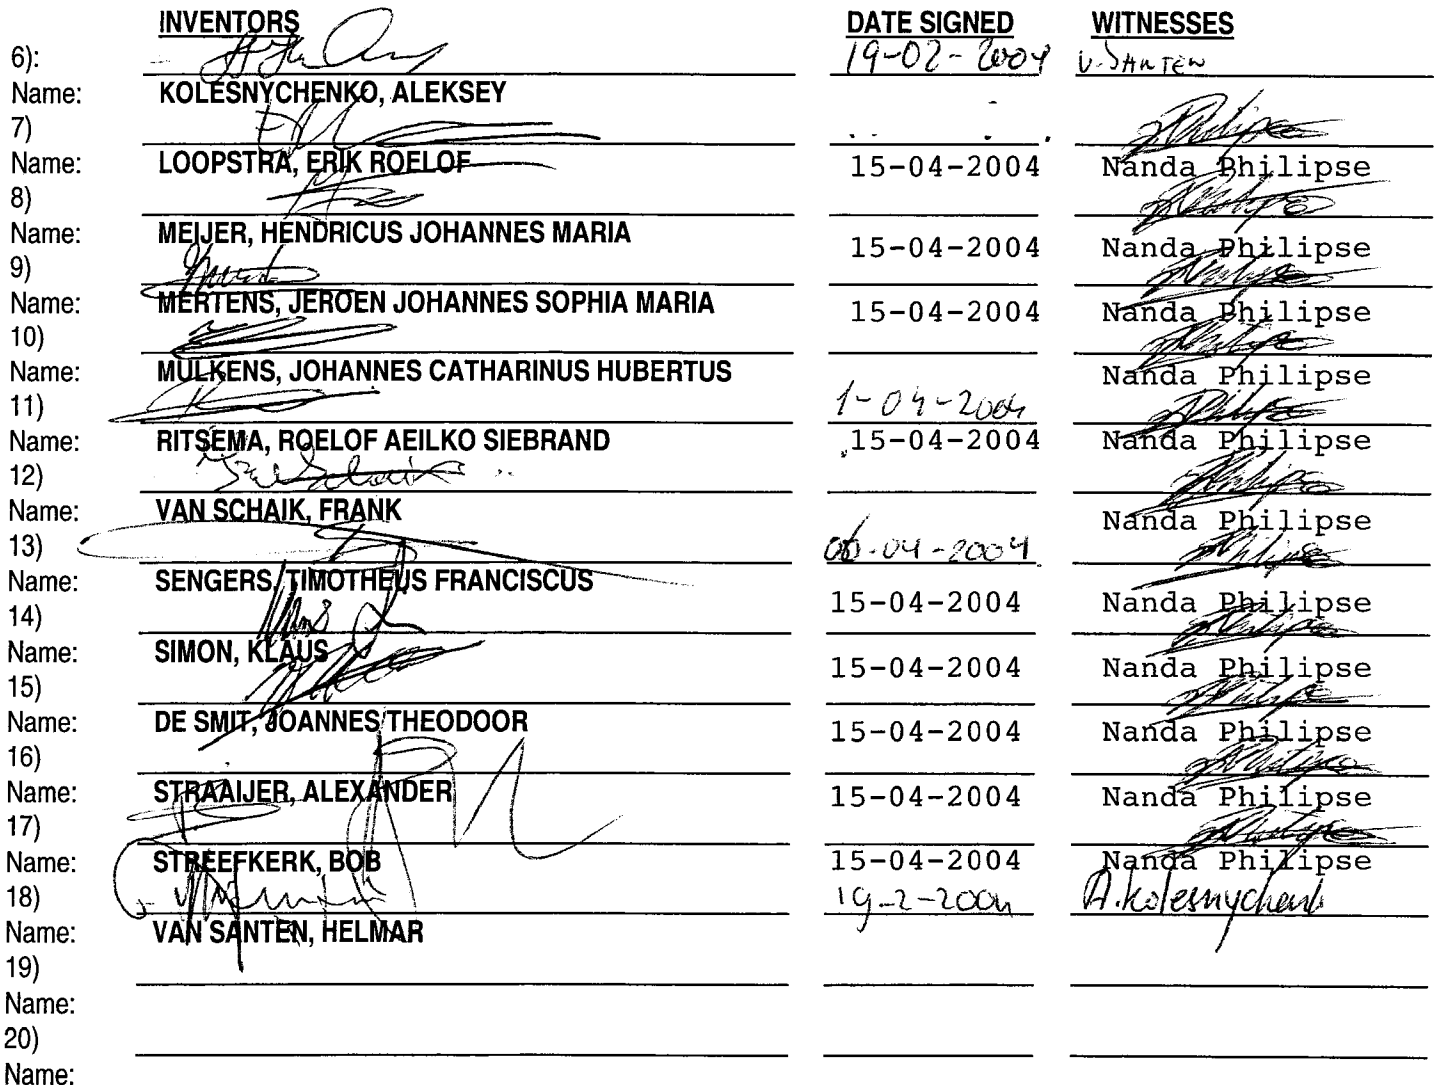 INVENTORS DATE SIGNED WITNESSES
6): 19-02-2004 V. SANTEN
Name: KOLESNYCHENKO, ALEKSEY
7)
Name: LOOPSTRA, ERIK ROELOF 15-04-2004 Nanda Philipse
8)
Name: MEIJER, HENDRICUS JOHANNES MARIA 15-04-2004 Nanda Philipse
9)
Name: MERTENS, JEROEN JOHANNES SOPHIA MARIA 15-04-2004 Nanda Philipse
10)
Name: MULKENS, JOHANNES CATHARINUS HUBERTUS Nanda Philipse
11) 1-04-2004
Name: RITSEMA, ROELOF AEILKO SIEBRAND 15-04-2004 Nanda Philipse
12)
Name: VAN SCHAIK, FRANK Nanda Philipse
13) 06-04-2004
Name: SENGERS, TIMOTHEUS FRANCISCUS 15-04-2004 Nanda Philipse
14)
Name: SIMON, KLAUS 15-04-2004 Nanda Philipse
15)
Name: DE SMIT, JOANNES THEODOOR 15-04-2004 Nanda Philipse
16)
Name: STRAAIJER, ALEXANDER 15-04-2004 Nanda Philipse
17)
Name: STREEFKERK, BOB 15-04-2004 Nanda Philipse
18) 19-2-2004 A. Kolesnychenko
Name: VAN SANTEN, HELMAR
19)
Name:
20)
Name: